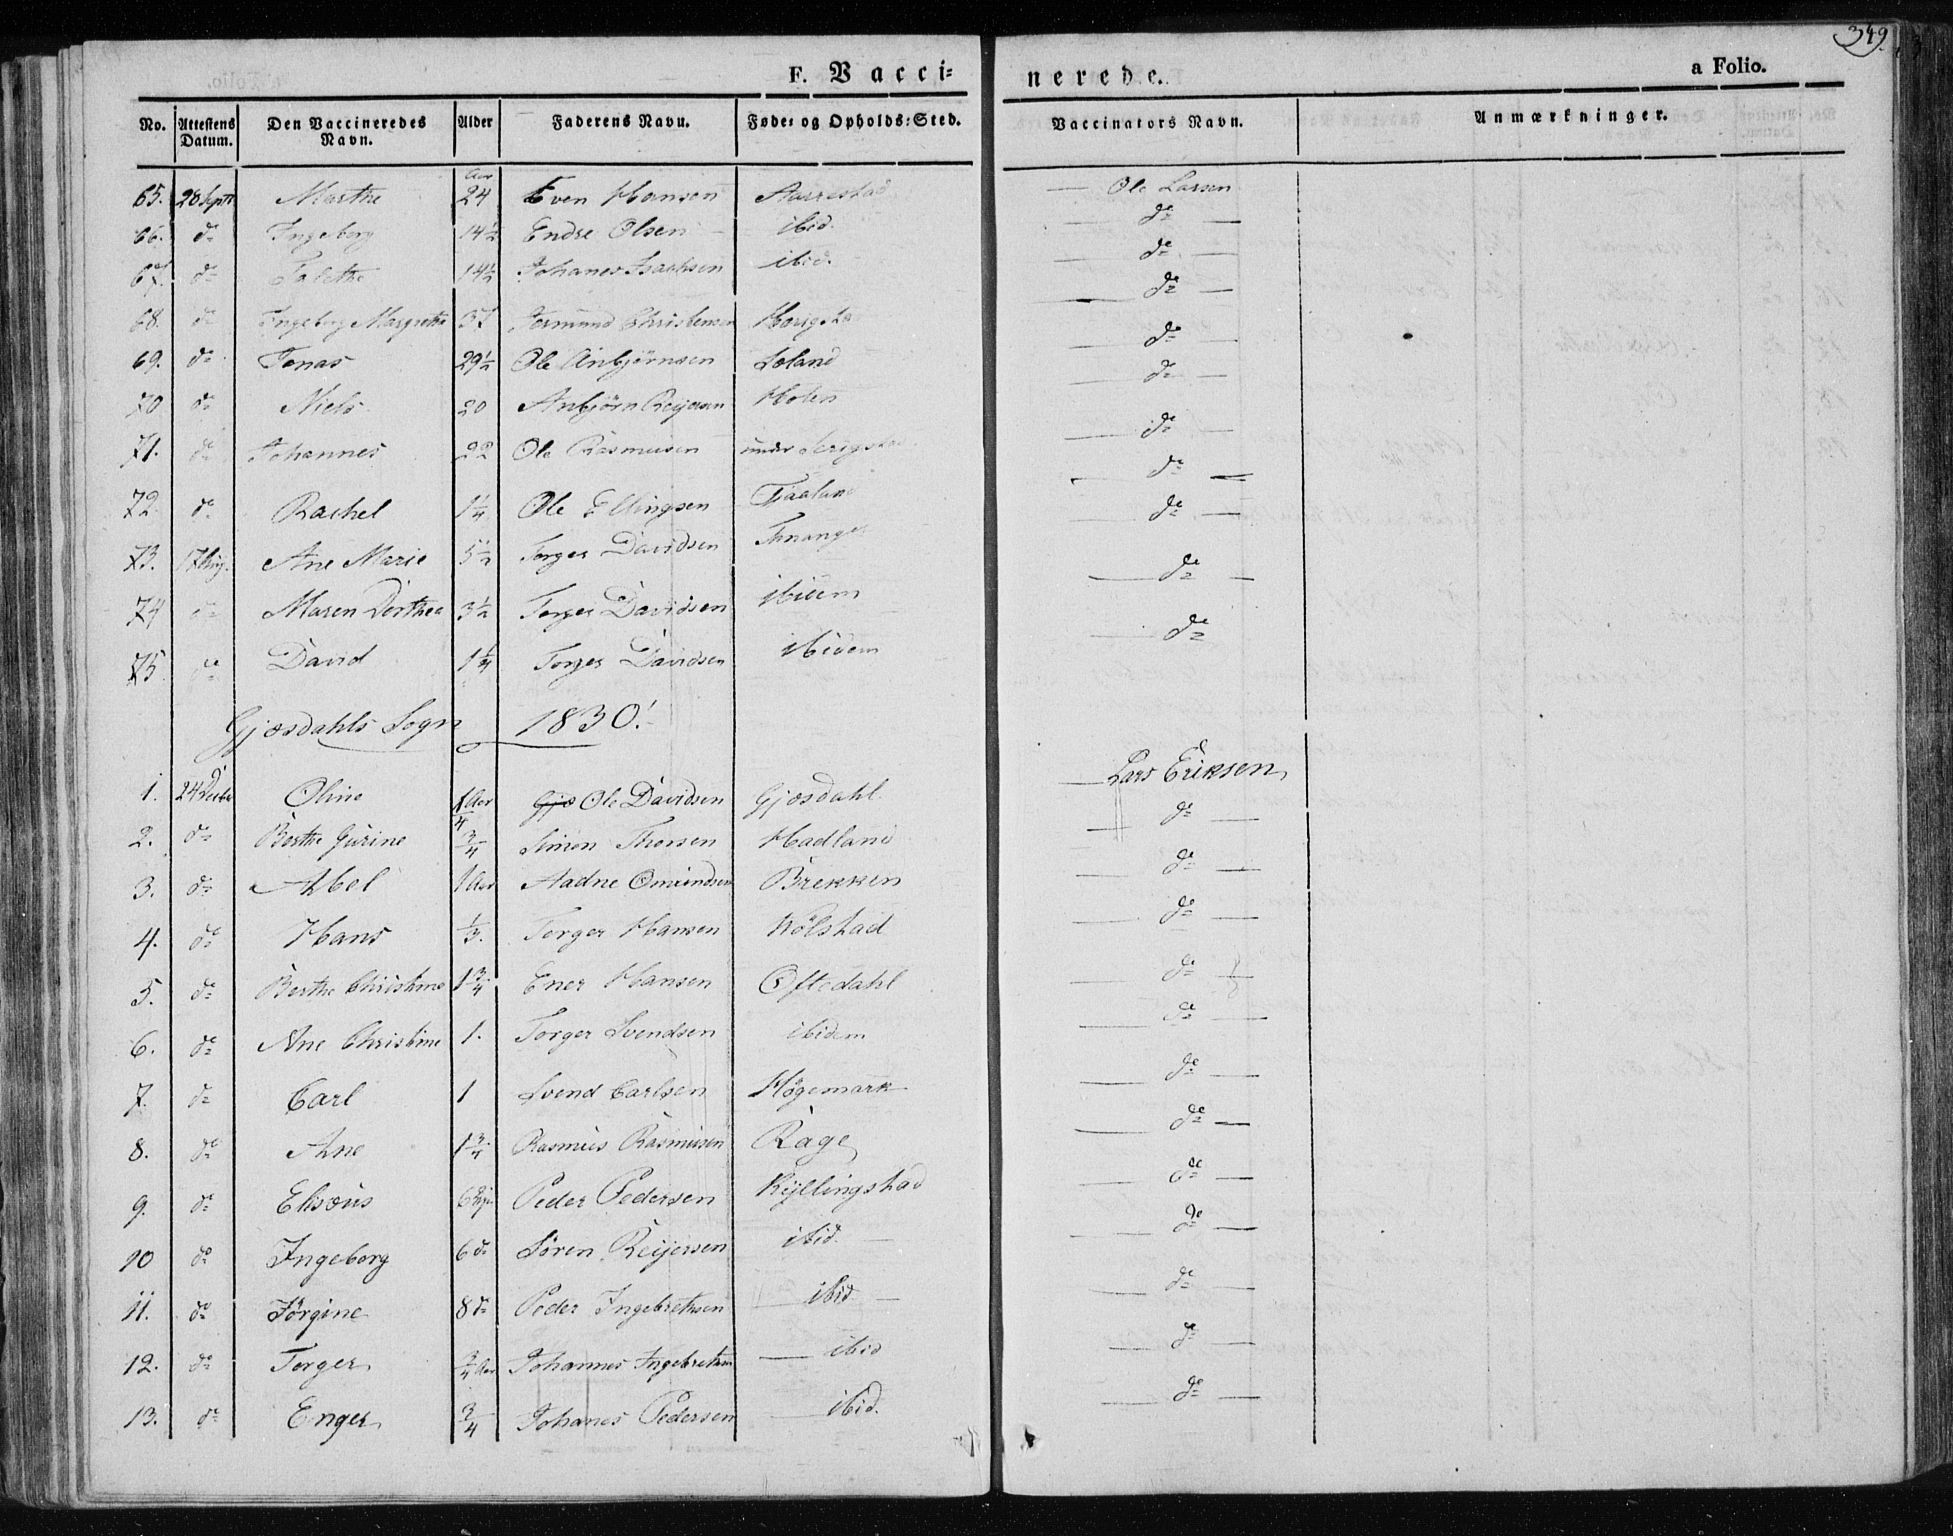 349.
F. Vacci= nerede. a Folio.
No. Attestens Datum. Den Vaccineredes Navn. Alder Faderens Navn. Føde= og Opholds=Sted. Vaccinators Navn. Anmærkninger.
Aar
65. Marthe 24 Even Hansen Aarrestad Ole Larsen
66. do Ingeborg 14½ Endre Olsen ibid. do
67. do Talethe 14½ Johanes Isachsen ibid. do
68. do Ingeborg Margrethe 37 Christensen do
69. do Jonas 29½ Ole Anbjörnsen Soland do
70 do Niels 20 Anbjörn Reijersen Holen do
71. do Johannes 22 Ole Rasmusen under do
72. do Rachel 1¼ Ole Ellingsen do
73. 17 Ane Marie 5½ Torger Davidsen do
74 do Maren Dorthea 3½ Torger Davidsen ibidem do
75 do David 1¼ Torger Davidsen ibidem do
Gjosdahls Sogn 1830!
1. 24 Decbr Oline 1 Aar Gjo Ole Davidsen Gjosdahl. Lars Eriksen
2. do Berthe Gurine ¾ Simon Thorsen Madland do
3. do Abel 1 Aar Aadne Omundsen Brekken do
4. do Hans ⅓. Torger Hansen Kölstad do
5. do Berthe Christine 1¾ Ener Hansen Oftedahl do
6. do Ane Christine 1. Torger Svendsen ibidem do
7. do Carl 1 Svend Carlsen Høgemark do
8. do Ane 1¾ Rasmus Rasmusen Rage do
9. do Elisæus 6 Peder Pedersen Kyllingstad do
10 do Ingeborg 6 do Sören Reijersen ibid. do
11. do Jörgine 8 do Peder Ingebretsen ibid do
12. do Torger ¾ Aar Johannes Ingebretsen ibid do
13. do Enger ¾ Johanes Pedersen ibid. do